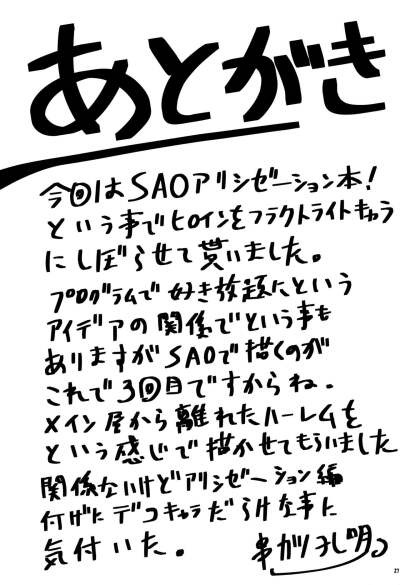 あとがき
今回はSAOアリシゼーション本!
という事でヒロインをフラクトライトキャラ
にしぼらせて貰いました。
プログラムで好き放題にという
アイデアの関係でという事も
ありますがSAOで描くのが
これで3回目ですからね.
メイン屋から離れたハーレムを
という感じで描かせてもらいました
関係ないけどアリシゼーション編
付けたデコキャラだらけな事に
気付いた。 串がつよし明。
27